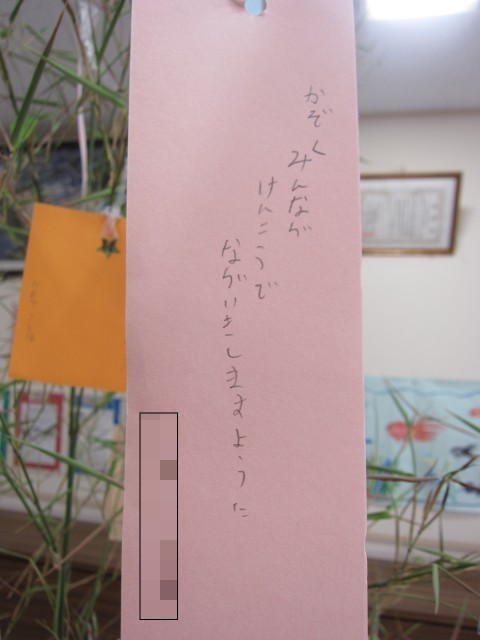 かぞくみんなが
けんこうで
ながいきしますように